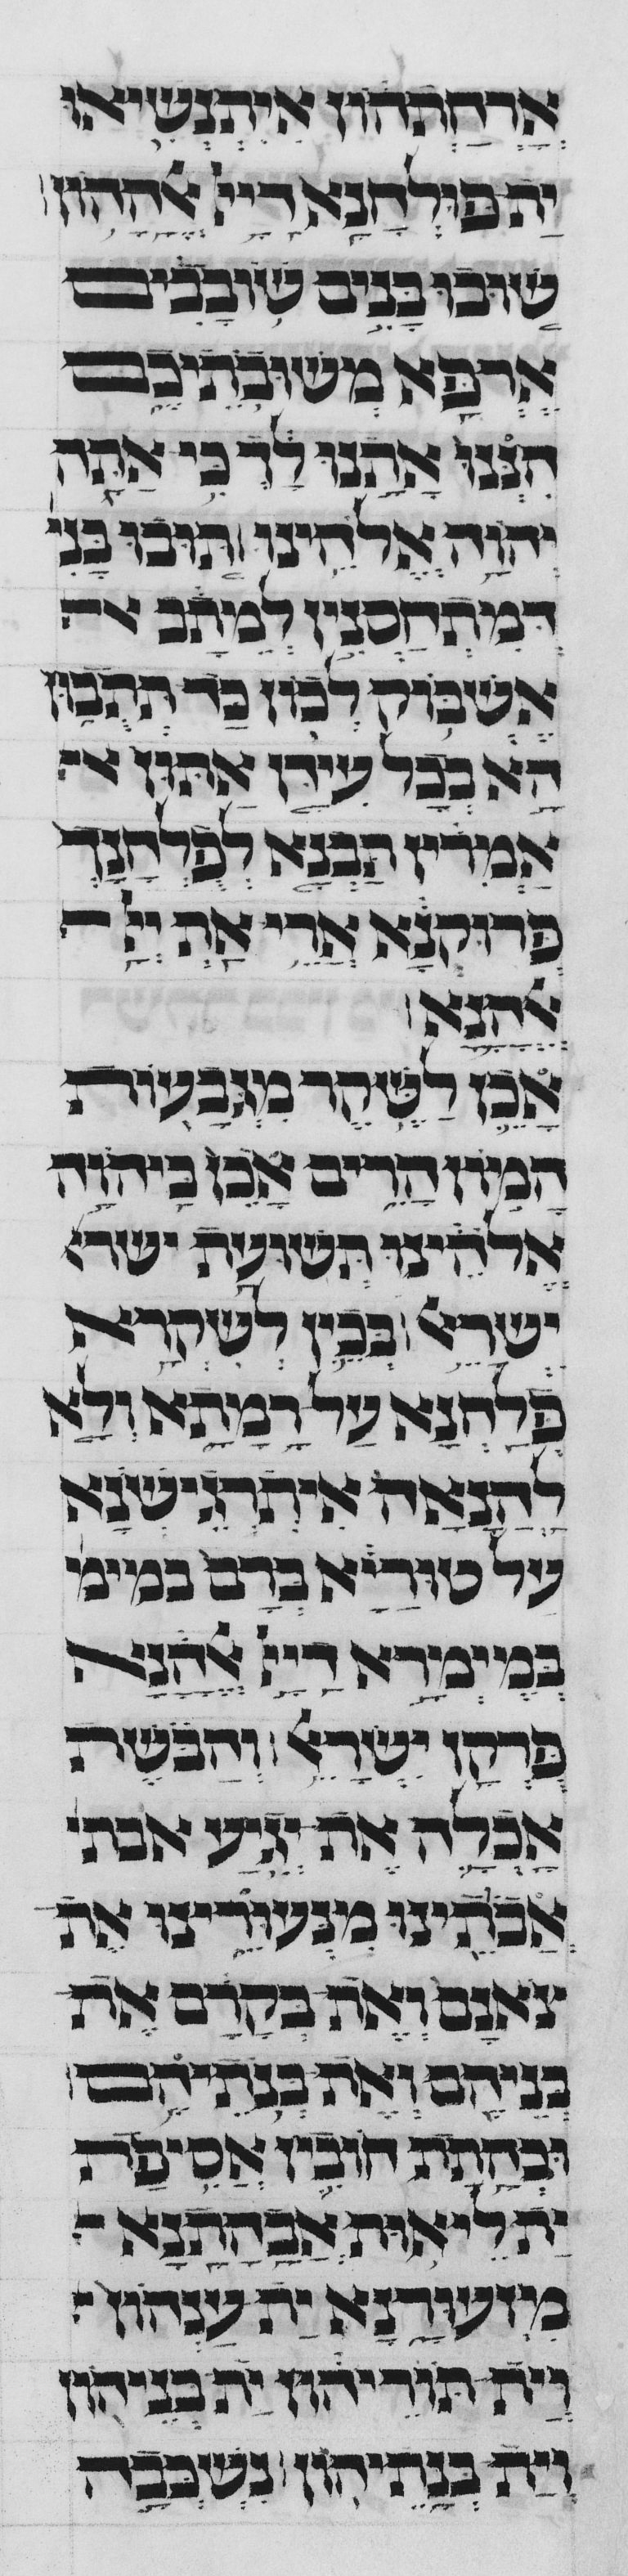 אָרְחָתְהוֹן אִיתְנְשִׁיאוּ
יַת פּוּלְחָנָא דַייָ אֱלָהֲהוֹן׃
שׁוּבוּ בָּנִים שׁוֹבָבִים
אֶרְפָּא מְשׁוּבֹתֵיכֶם
הִנְנוּ אָתָנוּ לָךְ כִּי אַתָּה
יְהוָה אֱלֹהֵינוּ׃ תּוּבוּ בְּנֵי
דְּמִתְחַסְנִין לְמִתַב אה
אֶשְׁבּוֹק לְכוֹן כַּד תְּתֻבוּן
הָא בְכָל עִידָן אַתּוּן א
אָמְרִין תַּבְנָא לְפֻלְחָנָךְ
פְּרוּקְנָא אֲרֵי אַתְּ יְיָ ה
אֱלָהָנָא׃
אָכֵן לַשֶּׁקֶר מִגְּבָעוֹת
הָמוֹן הָרִים אָכֵן בַּיהוָה
אֱלֹהֵינוּ תְּשׁוּעַת ישרא
יִשְׂרָאֵל׃ בְּכֵין לְשִׁקְרָא
פְּלַחְנָא עַל רָמָתָא וְלָא
לַהֲנָאָה אִיתְרְגֵישְׁנָא
עַל טוּרַיָּא בְּרַם במימ
בְּמֵימְרָא דַייָ אֱלָהָנָא
פֻּרְקַן יִשְׂרָאֵל׃ וְהַבֹּשֶׁת
אָכְלָה אֶת יְגִיעַ אבתי
אֲבֹתֵינוּ מִנְּעוּרֵינוּ אֶת
צֹאנָם וְאֶת בְּקָרָם אֶת
בְּנֵיהֶם וְאֶת בְּנֹתֵיהֶם׃
וּבְהֵתַת חוֹבִין אֲסֵיפַת
יַת לֵיאוּת אֲבָהָתָנָא
מִזְּעוּרָנָא יַת עָנְהוֹן
וְיַת תּוֹרֵיהוֹן יַת בְּנֵיהוֹן
וְיַת בְּנָתֵיהוֹן׃ נִשְׁכְּבָה